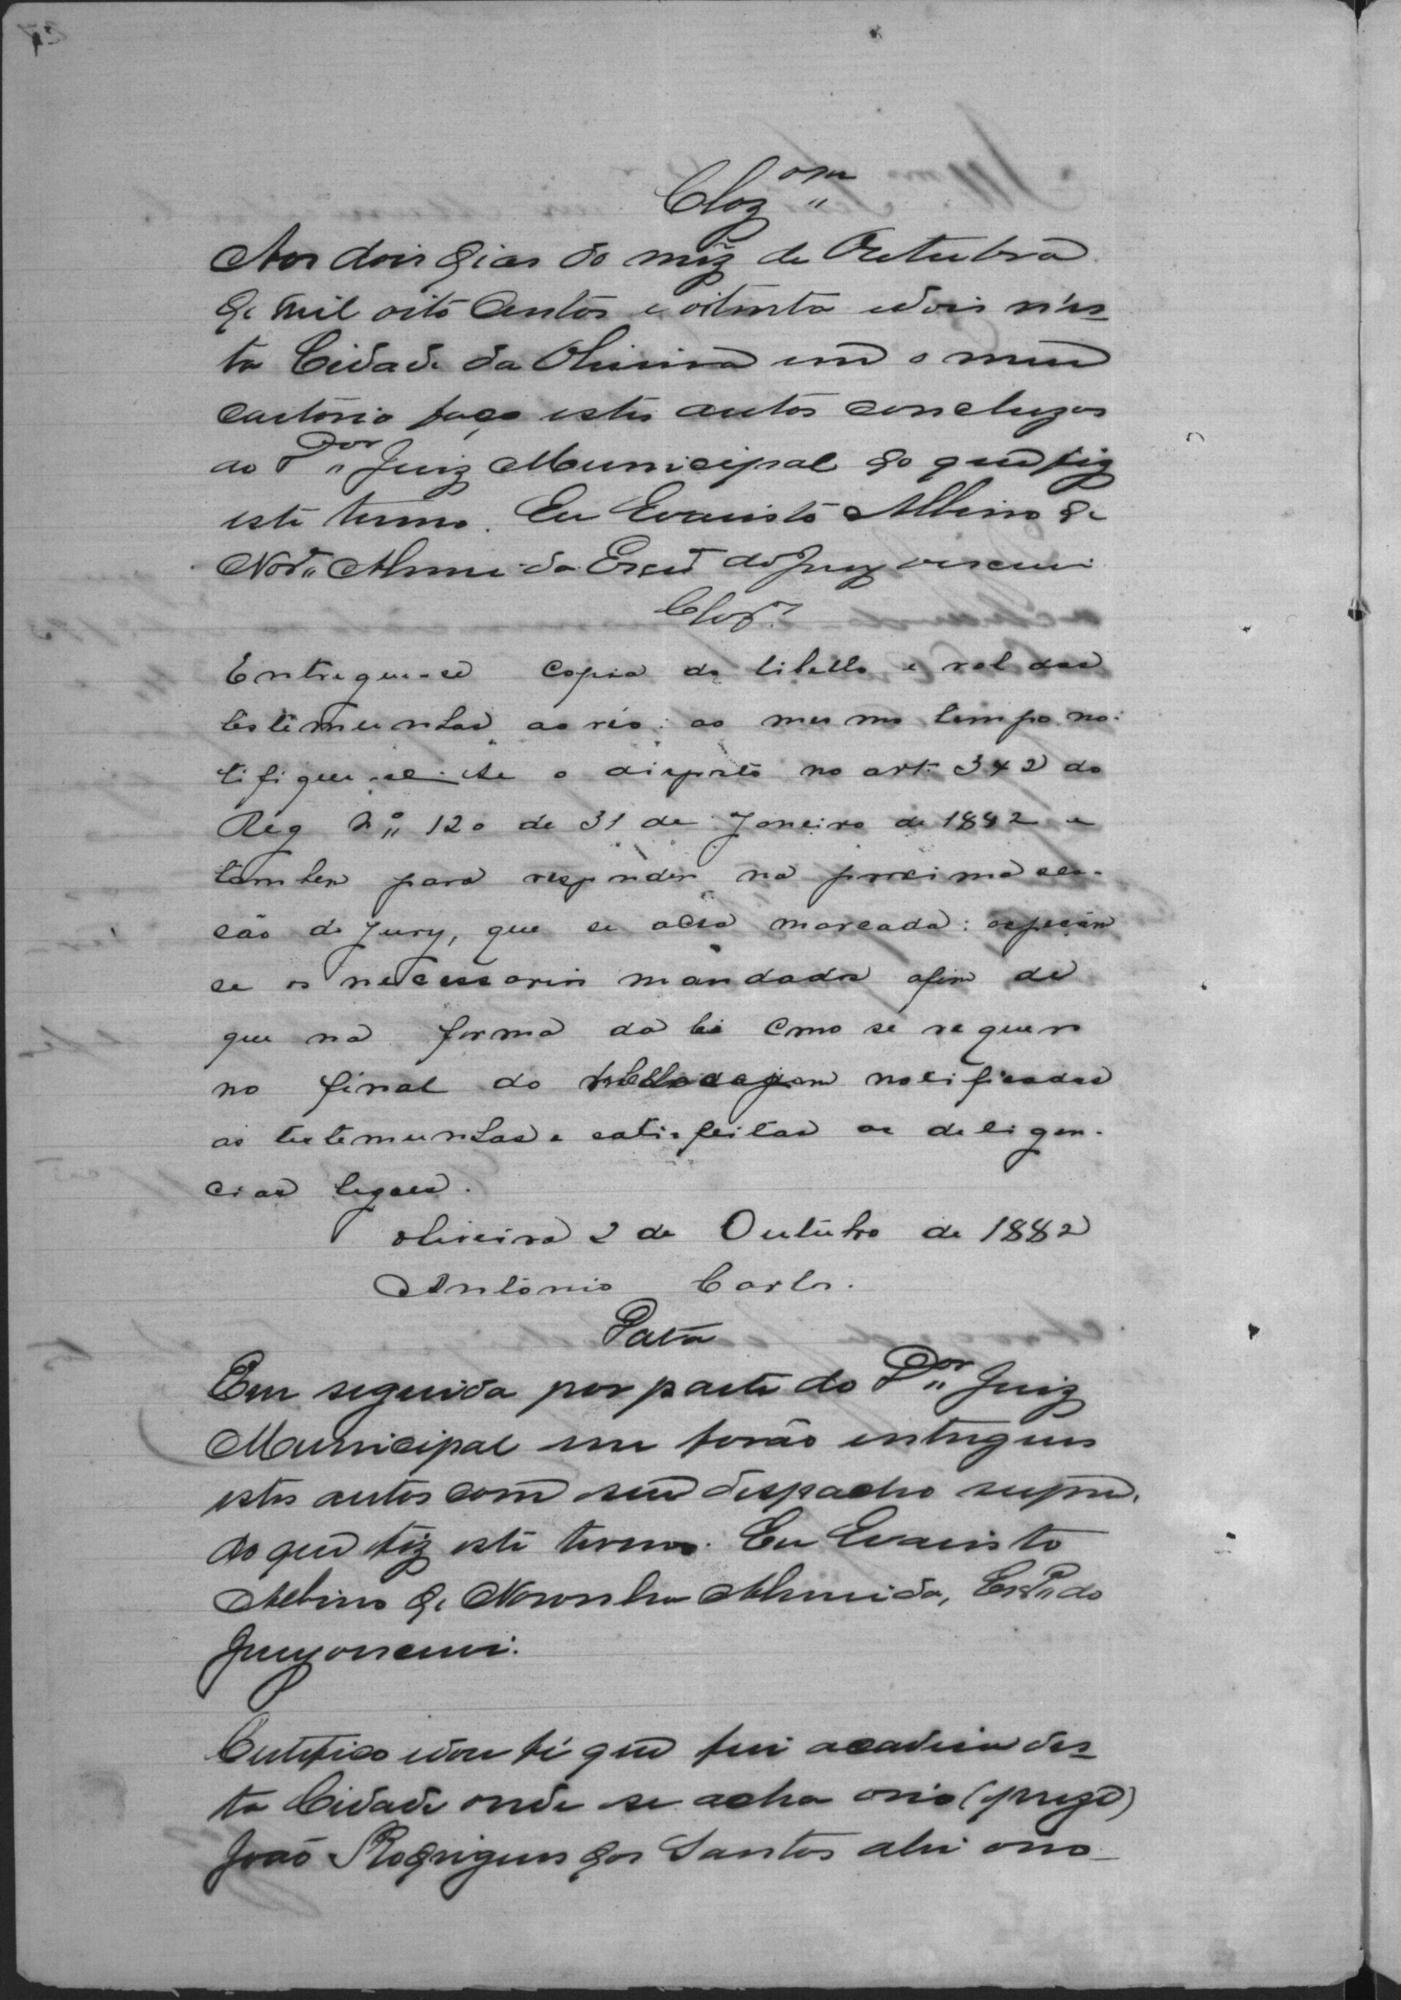 Clozam
Aos dois dias do mez de Outubro
de mil oito centos e oitenta e dois nes-
ta Cidade da Oliveira em o meu
cartorio faço estes autos concluzos
ao Dor Juiz Municipal do que fiz
este termo. Eu Evaristo Albino de
Nora Almeida Escm do Jury o escrevi
Cloz
Entregue-se copia do libello e rol das
testemunhas ao réo: ao mesmo tempo no-
tifique-se-lhe o disposto no art. 342 do
Reg No 120 de 31 de Janeiro de 1842 e
tambem para responder na proxima ses-
são do Jury, que se acha marcada: expeção
se os necessarios mandados afim de
que na forma da lei como se requer
no final do libello sejam notificadas
as testemunhas e satisfeitas as deligen-
cias legaes.
Oliveira 2 de Outubro de 1882
Antonio Carlos.
Data
Em seguida por parte do Dor Juiz
Municipal me forão entregues
estes autos com seu despacho supra,
do que fiz este termo. Eu Evaristo
Albino de Noronha Almeida, Escm do
Jury o escrevi.
Certifico e dou fé que fui a cadeia des-
ta Cidade onde se acha o reo (prezo)
João Rodrigues dos Santos ahi o no-